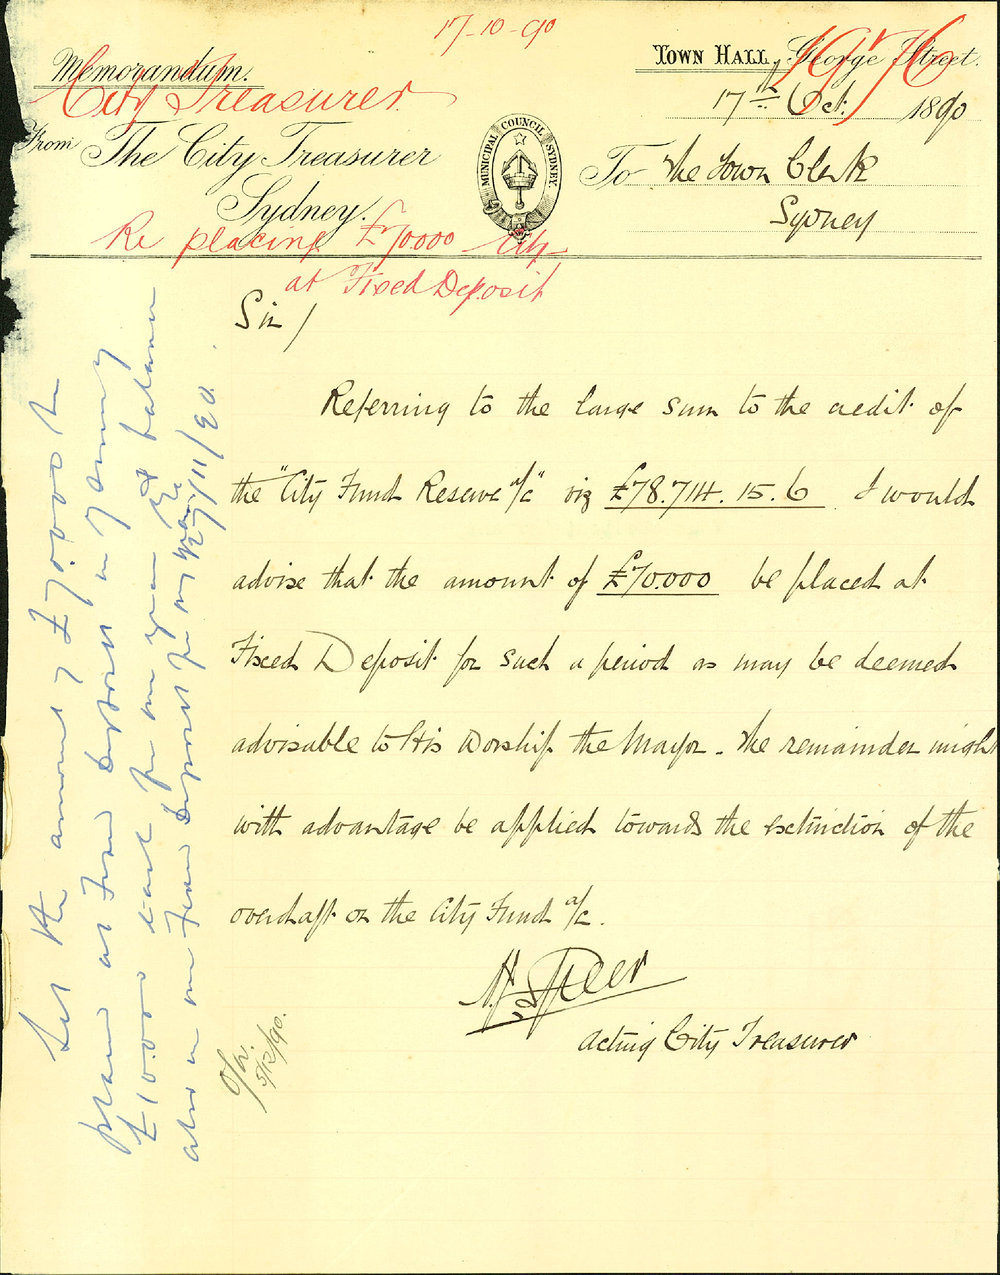 17-10-90
1976
Memorandum.
City Treasurer
From The City Treasurer
Sydney.
MUNICIPAL COUNCIL SYDNEY.
Town Hall, George Street.
17th Oct. 1890
To The Town Clerk
Sydney
Re placing £70000 City
at Fixed Deposit
Sir/
Referring to the large sum to the credit of
the "City Fund Reserve a/c" viz £78.714.15.6 I would
advise that the amount of £70.000 be placed at
Fixed Deposit for such a period as may be deemed
advisable to His Worship the Mayor. The remainder might
with advantage be applied towards the extinction of the
overdraft on the City Fund a/c.
Acting City Treasurer
Let the amount of £70.000 be
placed as Fixed Deposit in
£10.000 each for one year & balance
also on Fixed Deposit for
7/11/90.
5/12/90.